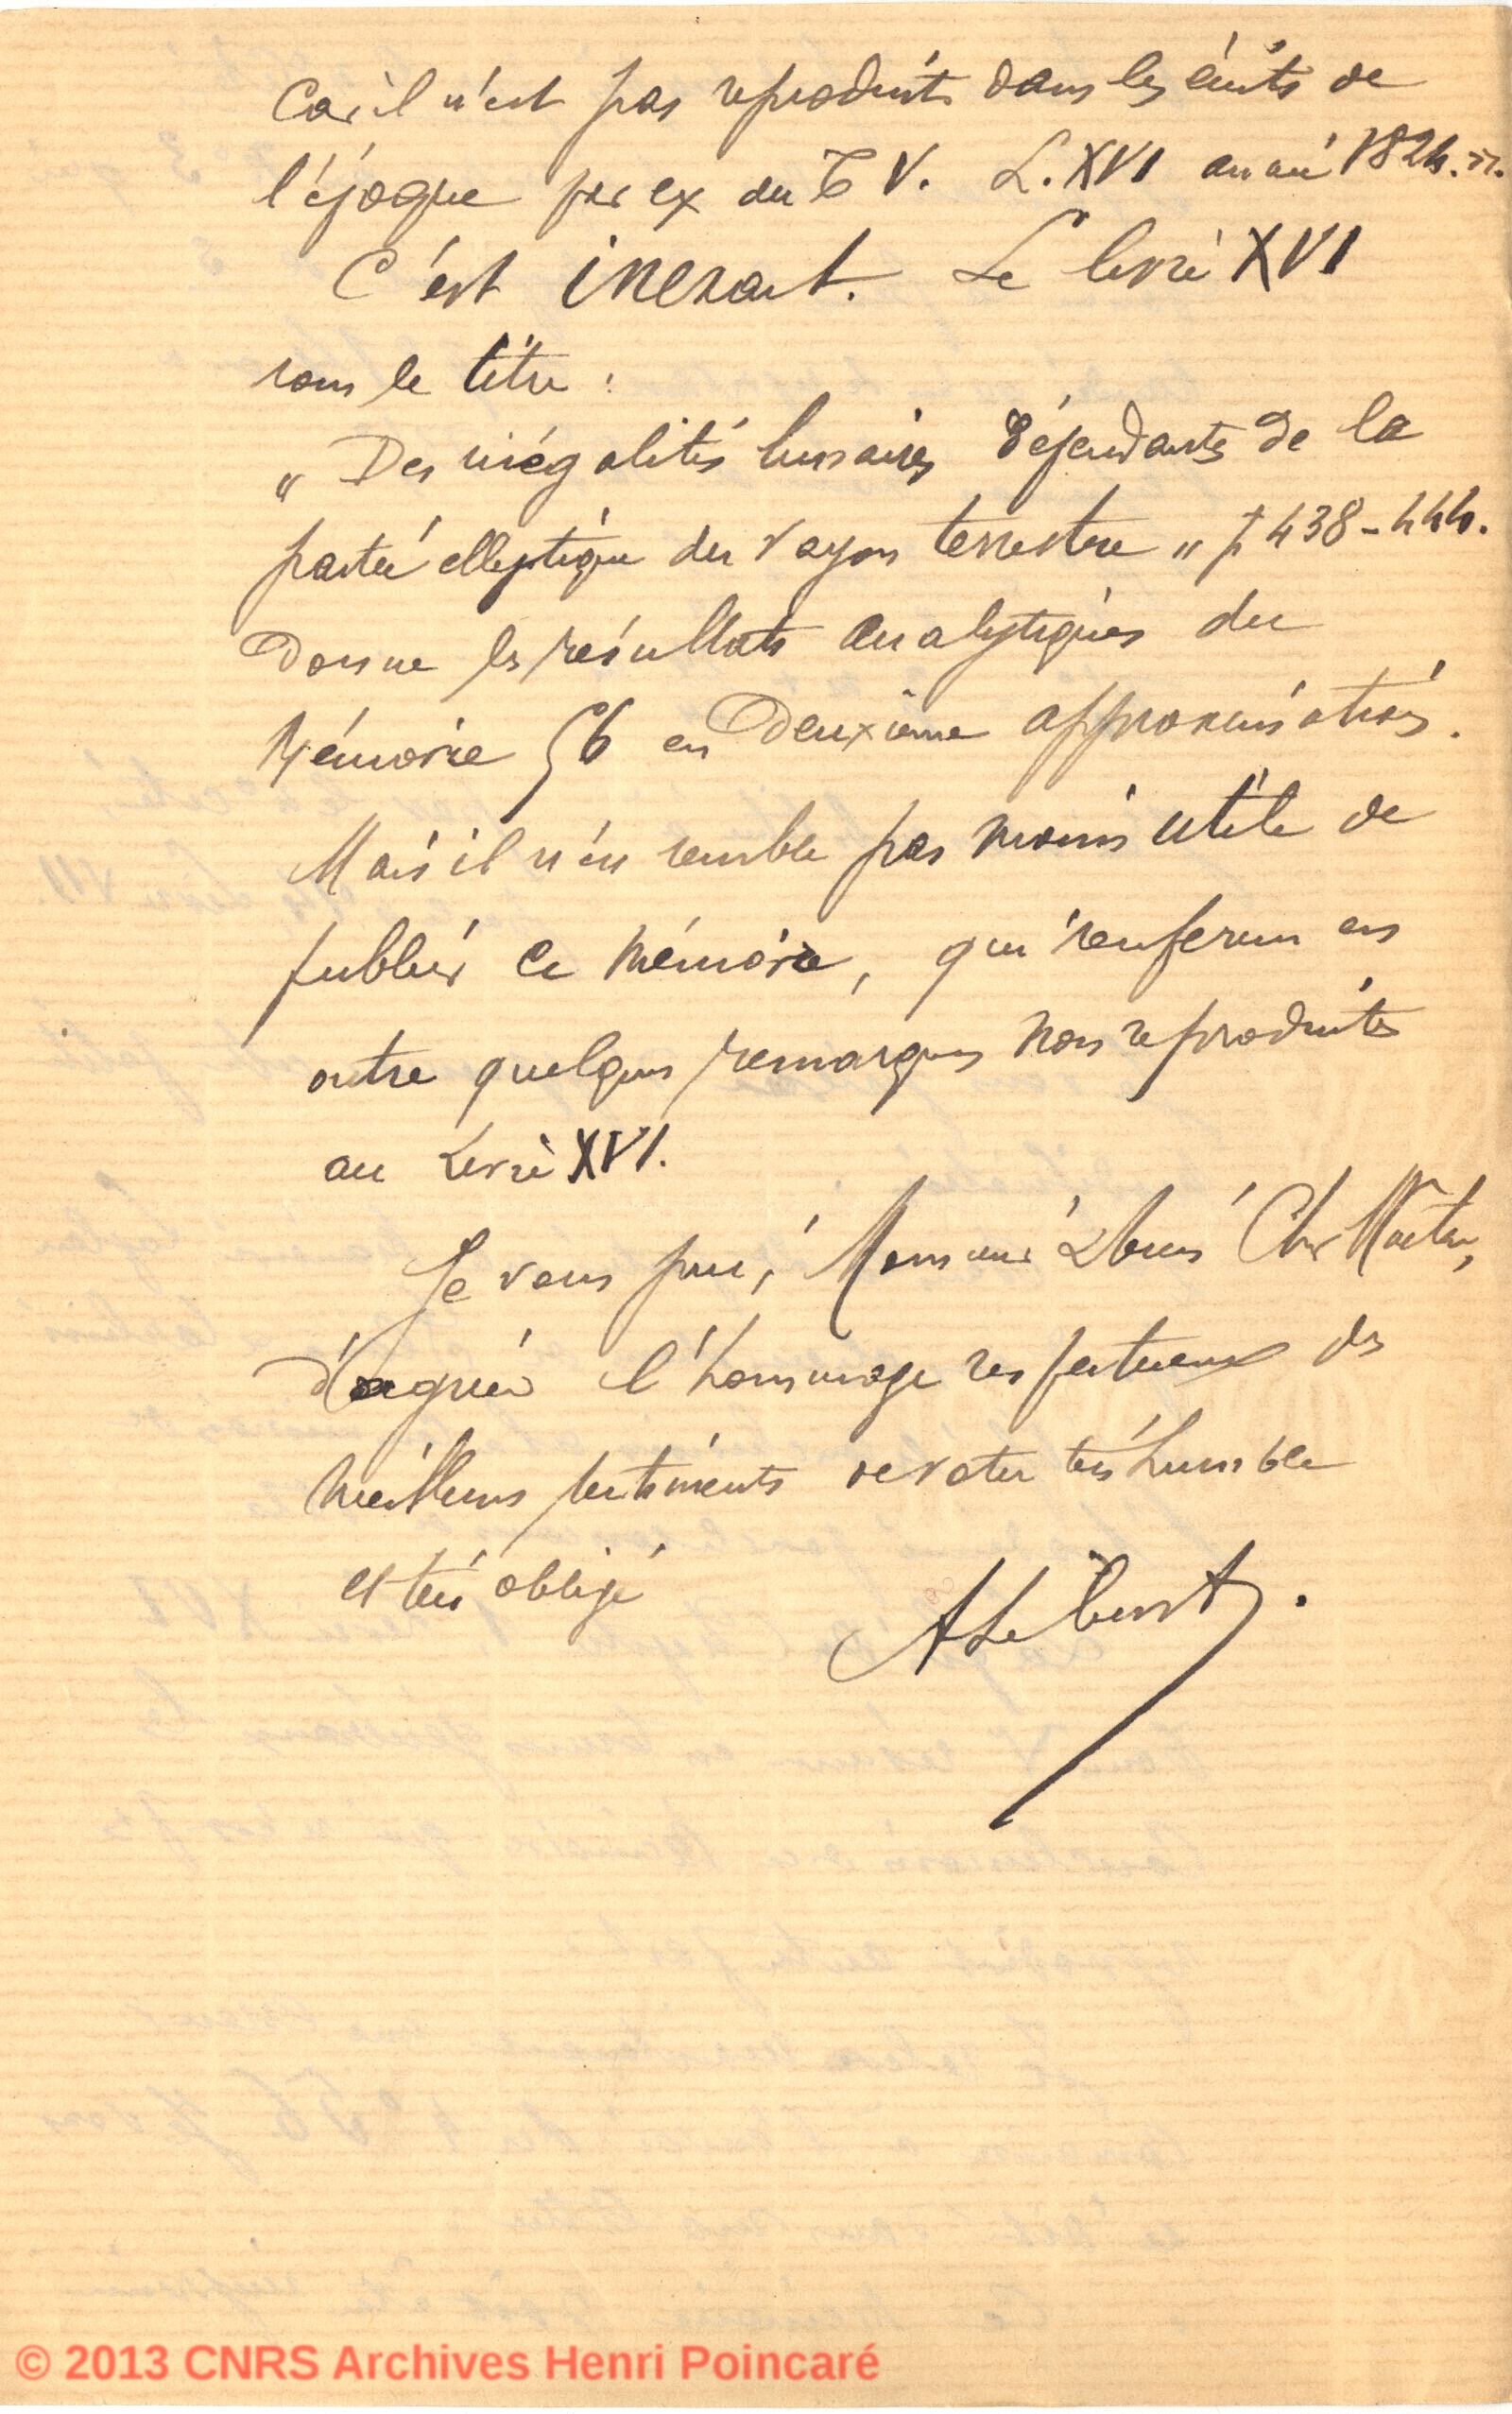 Car il n'est pas reproduits dans les écrits de
l'époque par ex du T V. L. XVI année 1824. ».
C'est inexact. Le livre XVI
sous le titre :
" Des inégalités lunaires dépendantes de la
partie elliptique du rayon terrestre " p 438-444.
Donne les résultats analytiques du
Mémoire § 6 en deuxième approximation.
Mais il n'en semble pas moins utile de
publier ce Mémoire, qui renferme en
outre quelques remarques non reproduites
au Livre XVI.
Je vous prie, Monsieur Cher Maitre,
d'agréer l'hommage respectueux des
meilleurs sentiments de votre très humble
et très obligé
A Lebeuf.
© 2013 CNRS Archives Henri Poincaré